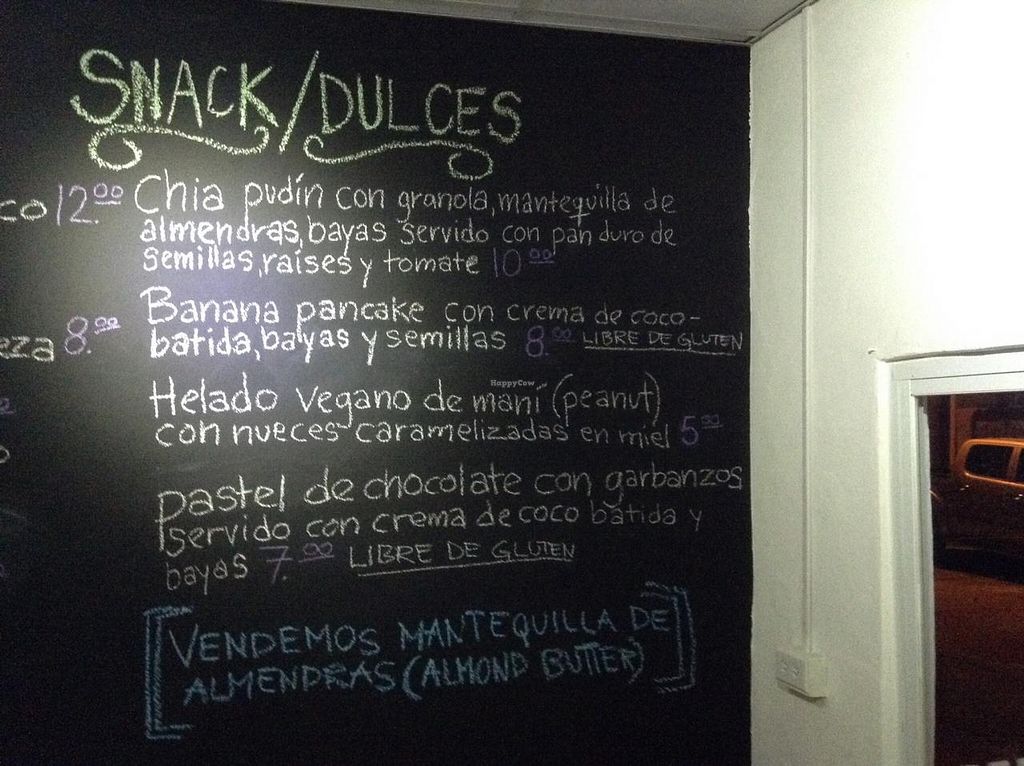 SNACK/DULCES
co 12.00 Chia pudín con granola, mantequilla de
almendras, bayas servido con pan duro de
semillas, raíses y tomate 10.00
Banana pancake con crema de coco-
eza 8.00 batida, bayas y semillas 8.00 LIBRE DE GLUTEN
HappyCow
Helado vegano de maní (peanut)
con nueces caramelizadas en miel 5.00
pastel de chocolate con garbanzos
servido con crema de coco batida y
bayas 7.00 LIBRE DE GLUTEN
[VENDEMOS MANTEQUILLA DE
ALMENDRAS (ALMOND BUTTER)]